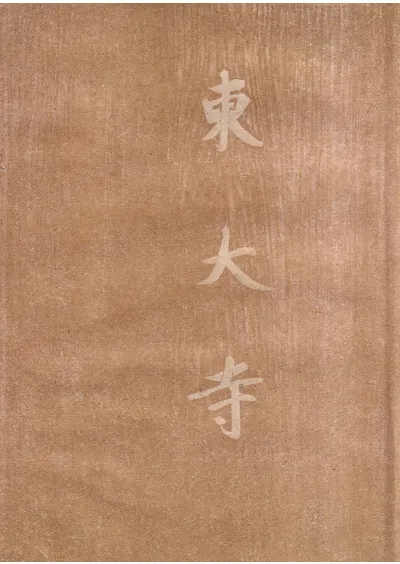 東大寺